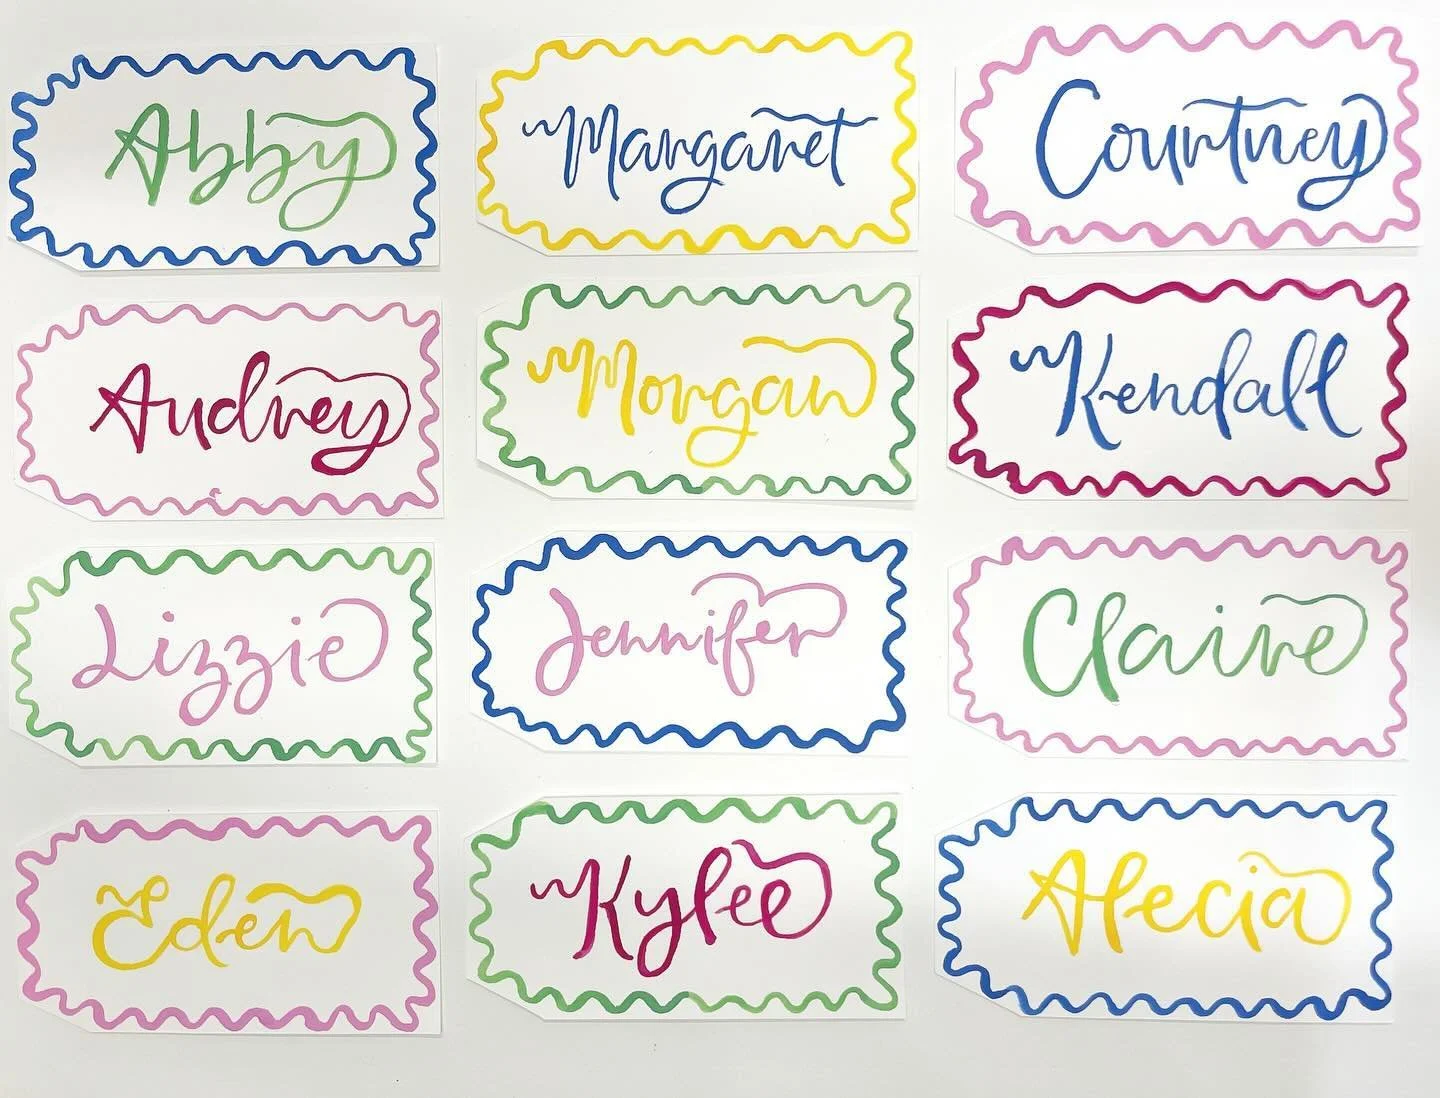 Abby
Margaret
Courtney
Audrey
Morgan
Kendall
Lizzie
Jennifer
Claire
Eden
Kylee
Alecia